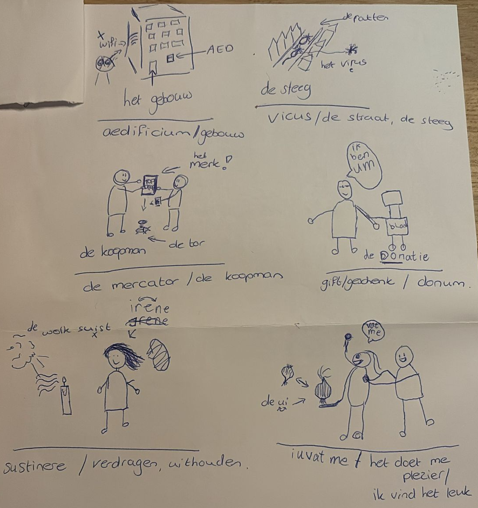 x
wifi
AED
het gebouw
aedificium/gebouw
de ratten
het virus
de steeg
vicus/de straat, de steeg
het
merk!
de koopman
de tor
de mercator/de koopman
ik
ben
um
blok
de DOnatie
gift/geschenk / donum.
irene
de wolk suist
sustinere / verdragen, uithouden.
voe
me
de ui
iuvat me / het doet me
plezier/
ik vind het leuk